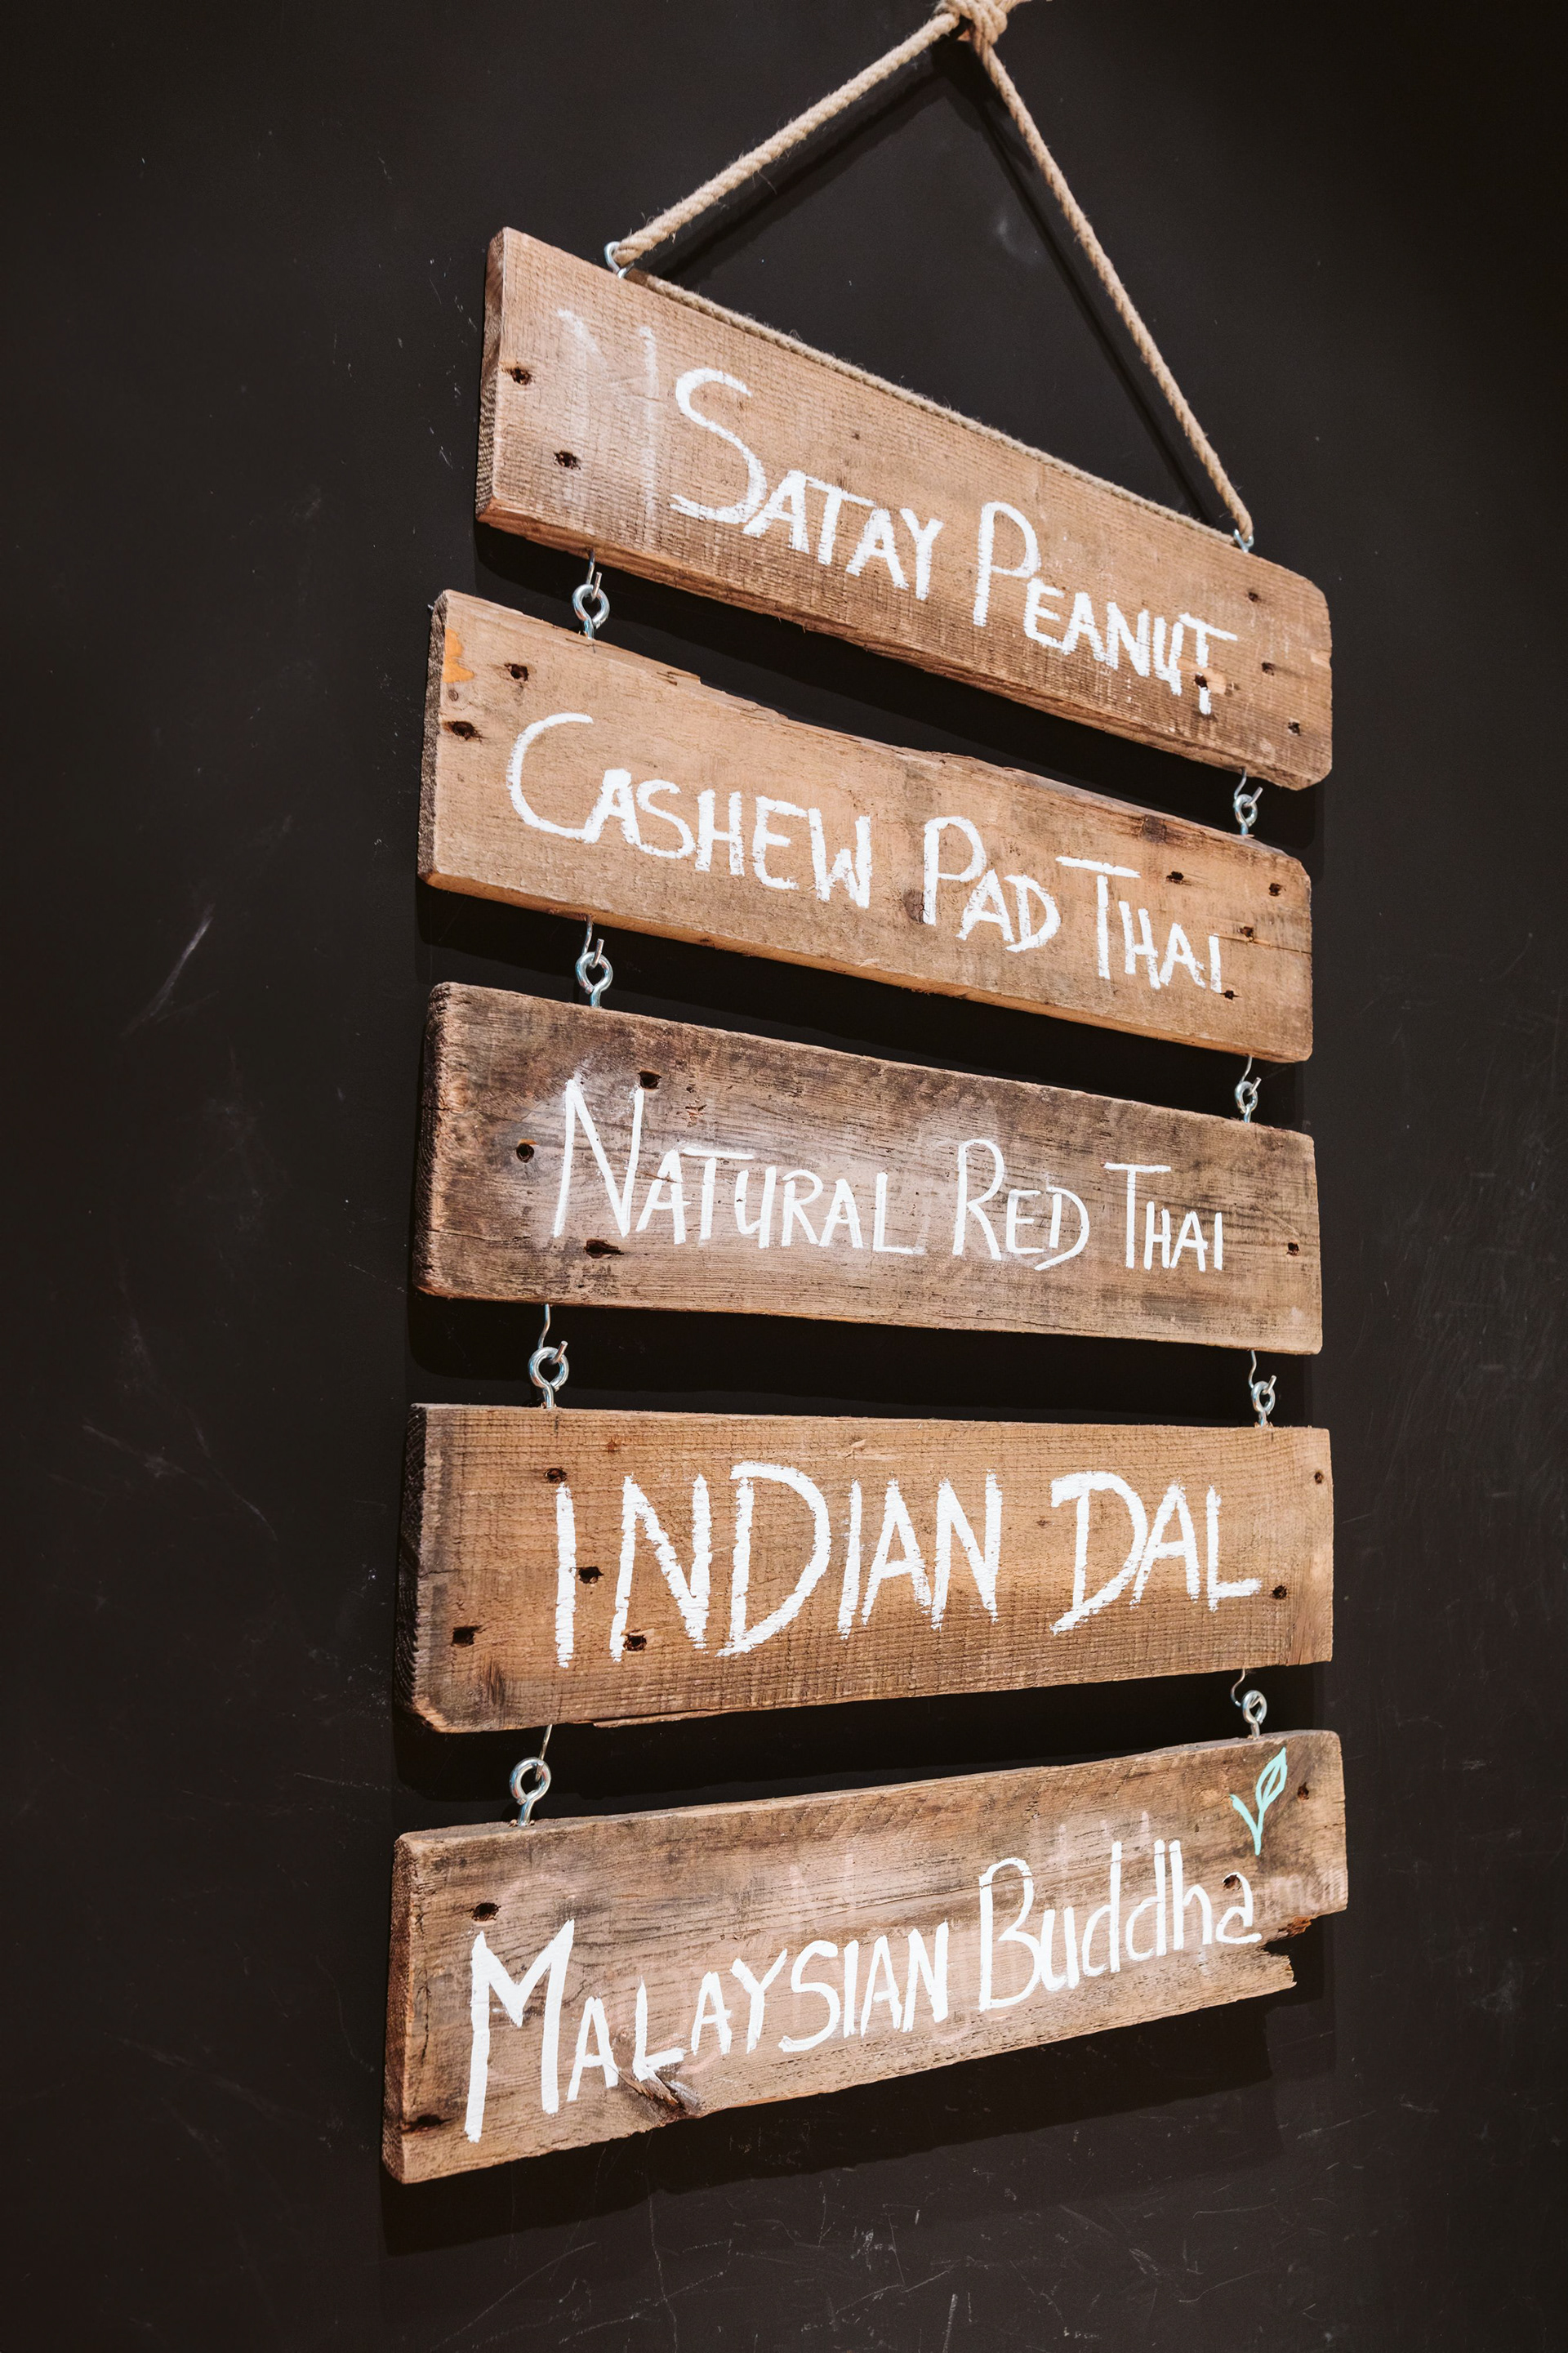 SATAY PEANUT
CASHEW PAD THAI
NATURAL RED THAI
INDIAN DAL
MALAYSIAN Buddha